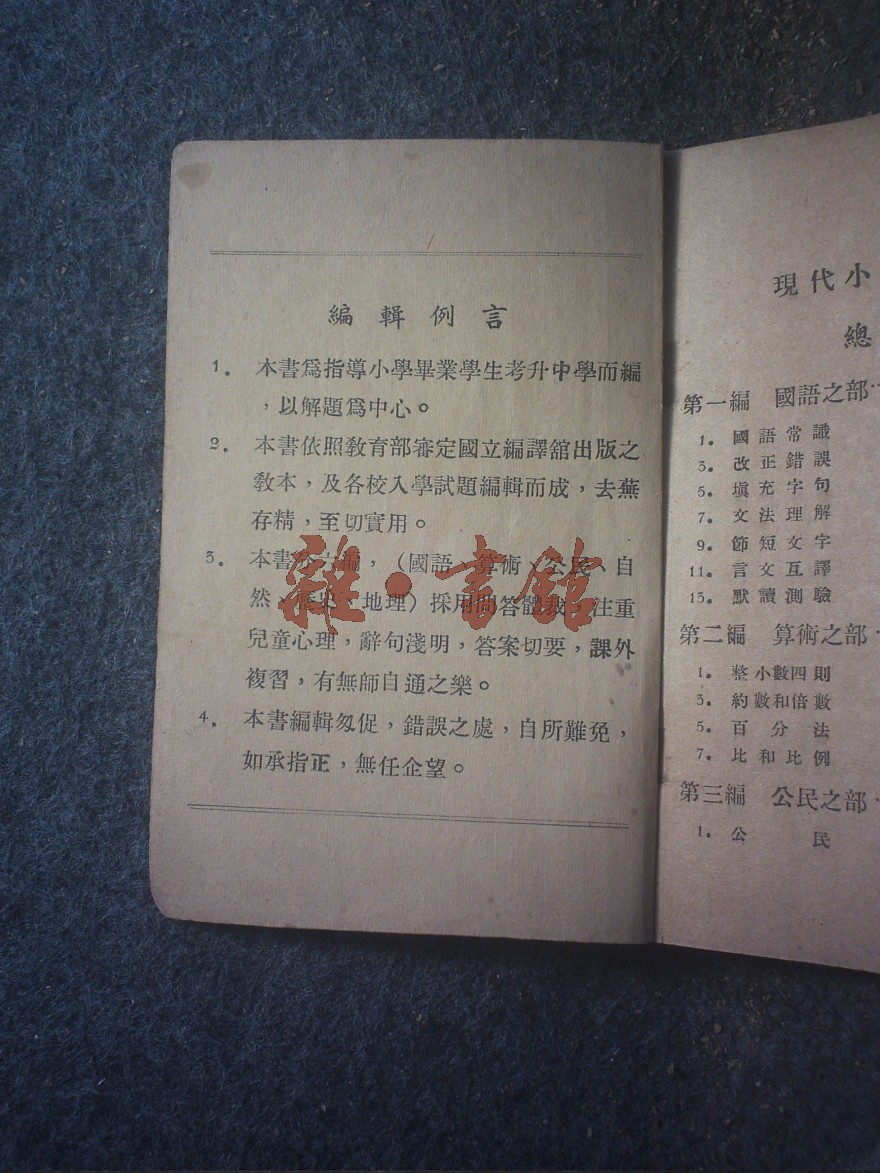 編輯例言
1. 本書爲指導小學畢業學生考升中學而編
，以解題爲中心。
2. 本書依照敎育部審定國立編譯舘出版之
敎本，及各校入學試題編輯而成，去蕪
存精，至切實用。
3. 本書分六編，（國語、算術、公民、自
然、歷史、地理）採用問答體裁，注重
兒童心理，辭句淺明，答案切要，課外
複習，有無師自通之樂。
4. 本書編輯匆促，錯誤之處，自所難免，
如承指正，無任企望。
雜·書館
現代小
總
第一編 國語之部
1. 國語常識
3. 改正錯誤
5. 塡充字句
7. 文法理解
9. 節短文字
11. 言文互譯
13. 默讀測驗
第二編 算術之部
1. 整小數四則
3. 約數和倍數
5. 百分法
7. 比和比例
第三編 公民之部
1. 公民